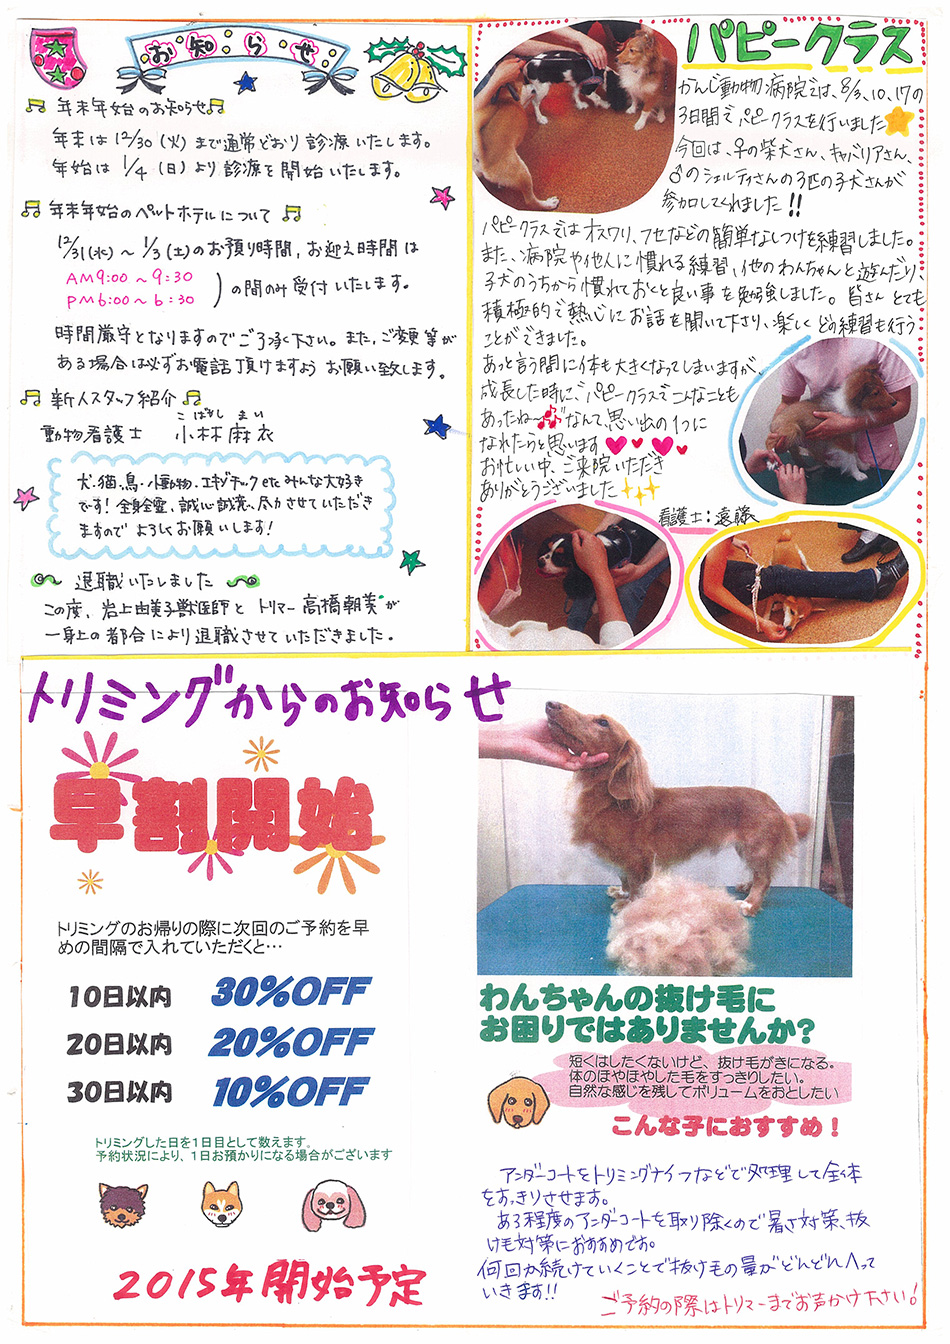 お知らせ
年末年始のお知らせ
年末は12/30(火)まで通常どおり診療いたします。
年始は1/4(日)より診療を開始いたします。
年末年始のペットホテルについて
12/31(水)~1/3(土)のお預り時間,お迎え時間は
AM9:00~9:30
PM6:00~6:30
の間のみ受付いたします。
時間厳守となりますのでご了承下さい。また,ご変更等が
ある場合は必ずお電話頂けますようお願い致します。
新人スタッフ紹介
こばやし まい
動物看護士 小林麻衣
犬・猫・鳥・小動物・エキゾチックetcみんな大好き
です!全身全霊、誠心誠意、尽力させていただき
ますのでよろしくお願いします!
退職いたしました
この度、岩上由美子獣医師とトリマー高橋朝美が
一身上の都合により退職させていただきました。
パピークラス
かんじ動物病院では、8/3、10、17の
3日間でパピークラスを行いました
今回は、♀の柴犬さん、キャバリアさん、
♂のシェルティさんの3匹の子犬さんが
参加してくれました!!
パピークラスではオスワリ、フセなどの簡単なしつけを練習しました。
また、病院や他人に慣れる練習、他のわんちゃんと遊んだり、
子犬のうちから慣れておくと良い事を勉強しました。皆さんとても
積極的で熱心にお話を聞いて下さり、楽しくどの練習も行う
ことができました。
あっと言う間に体も大きくなってしまいますが、
成長した時に、パピークラスでこんなことも
あったね〜なんて、思い出の1つに
なれたらと思います
お忙しい中、ご来院いただき
ありがとうございました
看護士:遠藤
トリミングからのお知らせ
早割開始
トリミングのお帰りの際に次回のご予約を早
めの間隔で入れていただくと…
10日以内 30%OFF
20日以内 20%OFF
30日以内 10%OFF
トリミングした日を1日目として数えます。
予約状況により、1日お預かりになる場合がございます
2015年開始予定
わんちゃんの抜け毛に
お困りではありませんか?
短くはしたくないけど、抜け毛がきになる。
体のほやほやした毛をすっきりしたい。
自然な感じを残してボリュームをおとしたい
こんな子におすすめ!
アンダーコートをトリミングナイフなどで処理して全体
をすっきりさせます。
ある程度のアンダーコートを取り除くので暑さ対策、抜
け毛対策におすすめです。
何回か続けていくことで抜け毛の量がどんどんへって
いきます!!
ご予約の際はトリマーまでお声かけ下さい!